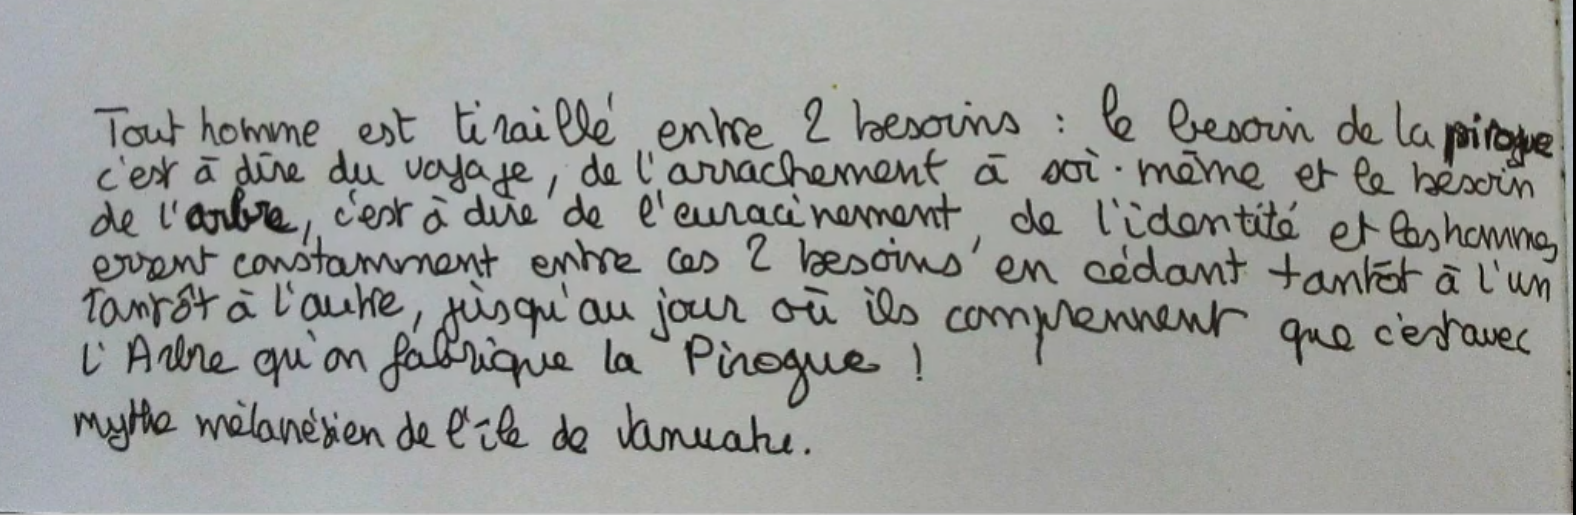 Tout homme est tiraillé entre 2 besoins : le besoin de la pirogue
c'est à dire du voyage, de l'arrachement à soi-même et le besoin
de l'arbre, c'est à dire de l'enracinement, de l'identité et les hommes
errent constamment entre ces 2 besoins en cédant tantôt à l'un
tantôt à l'autre, jusqu'au jour où ils comprennent que c'est avec
l'Arbre qu'on fabrique la Pirogue !
mythe mélanésien de l'île de Vanuatu.